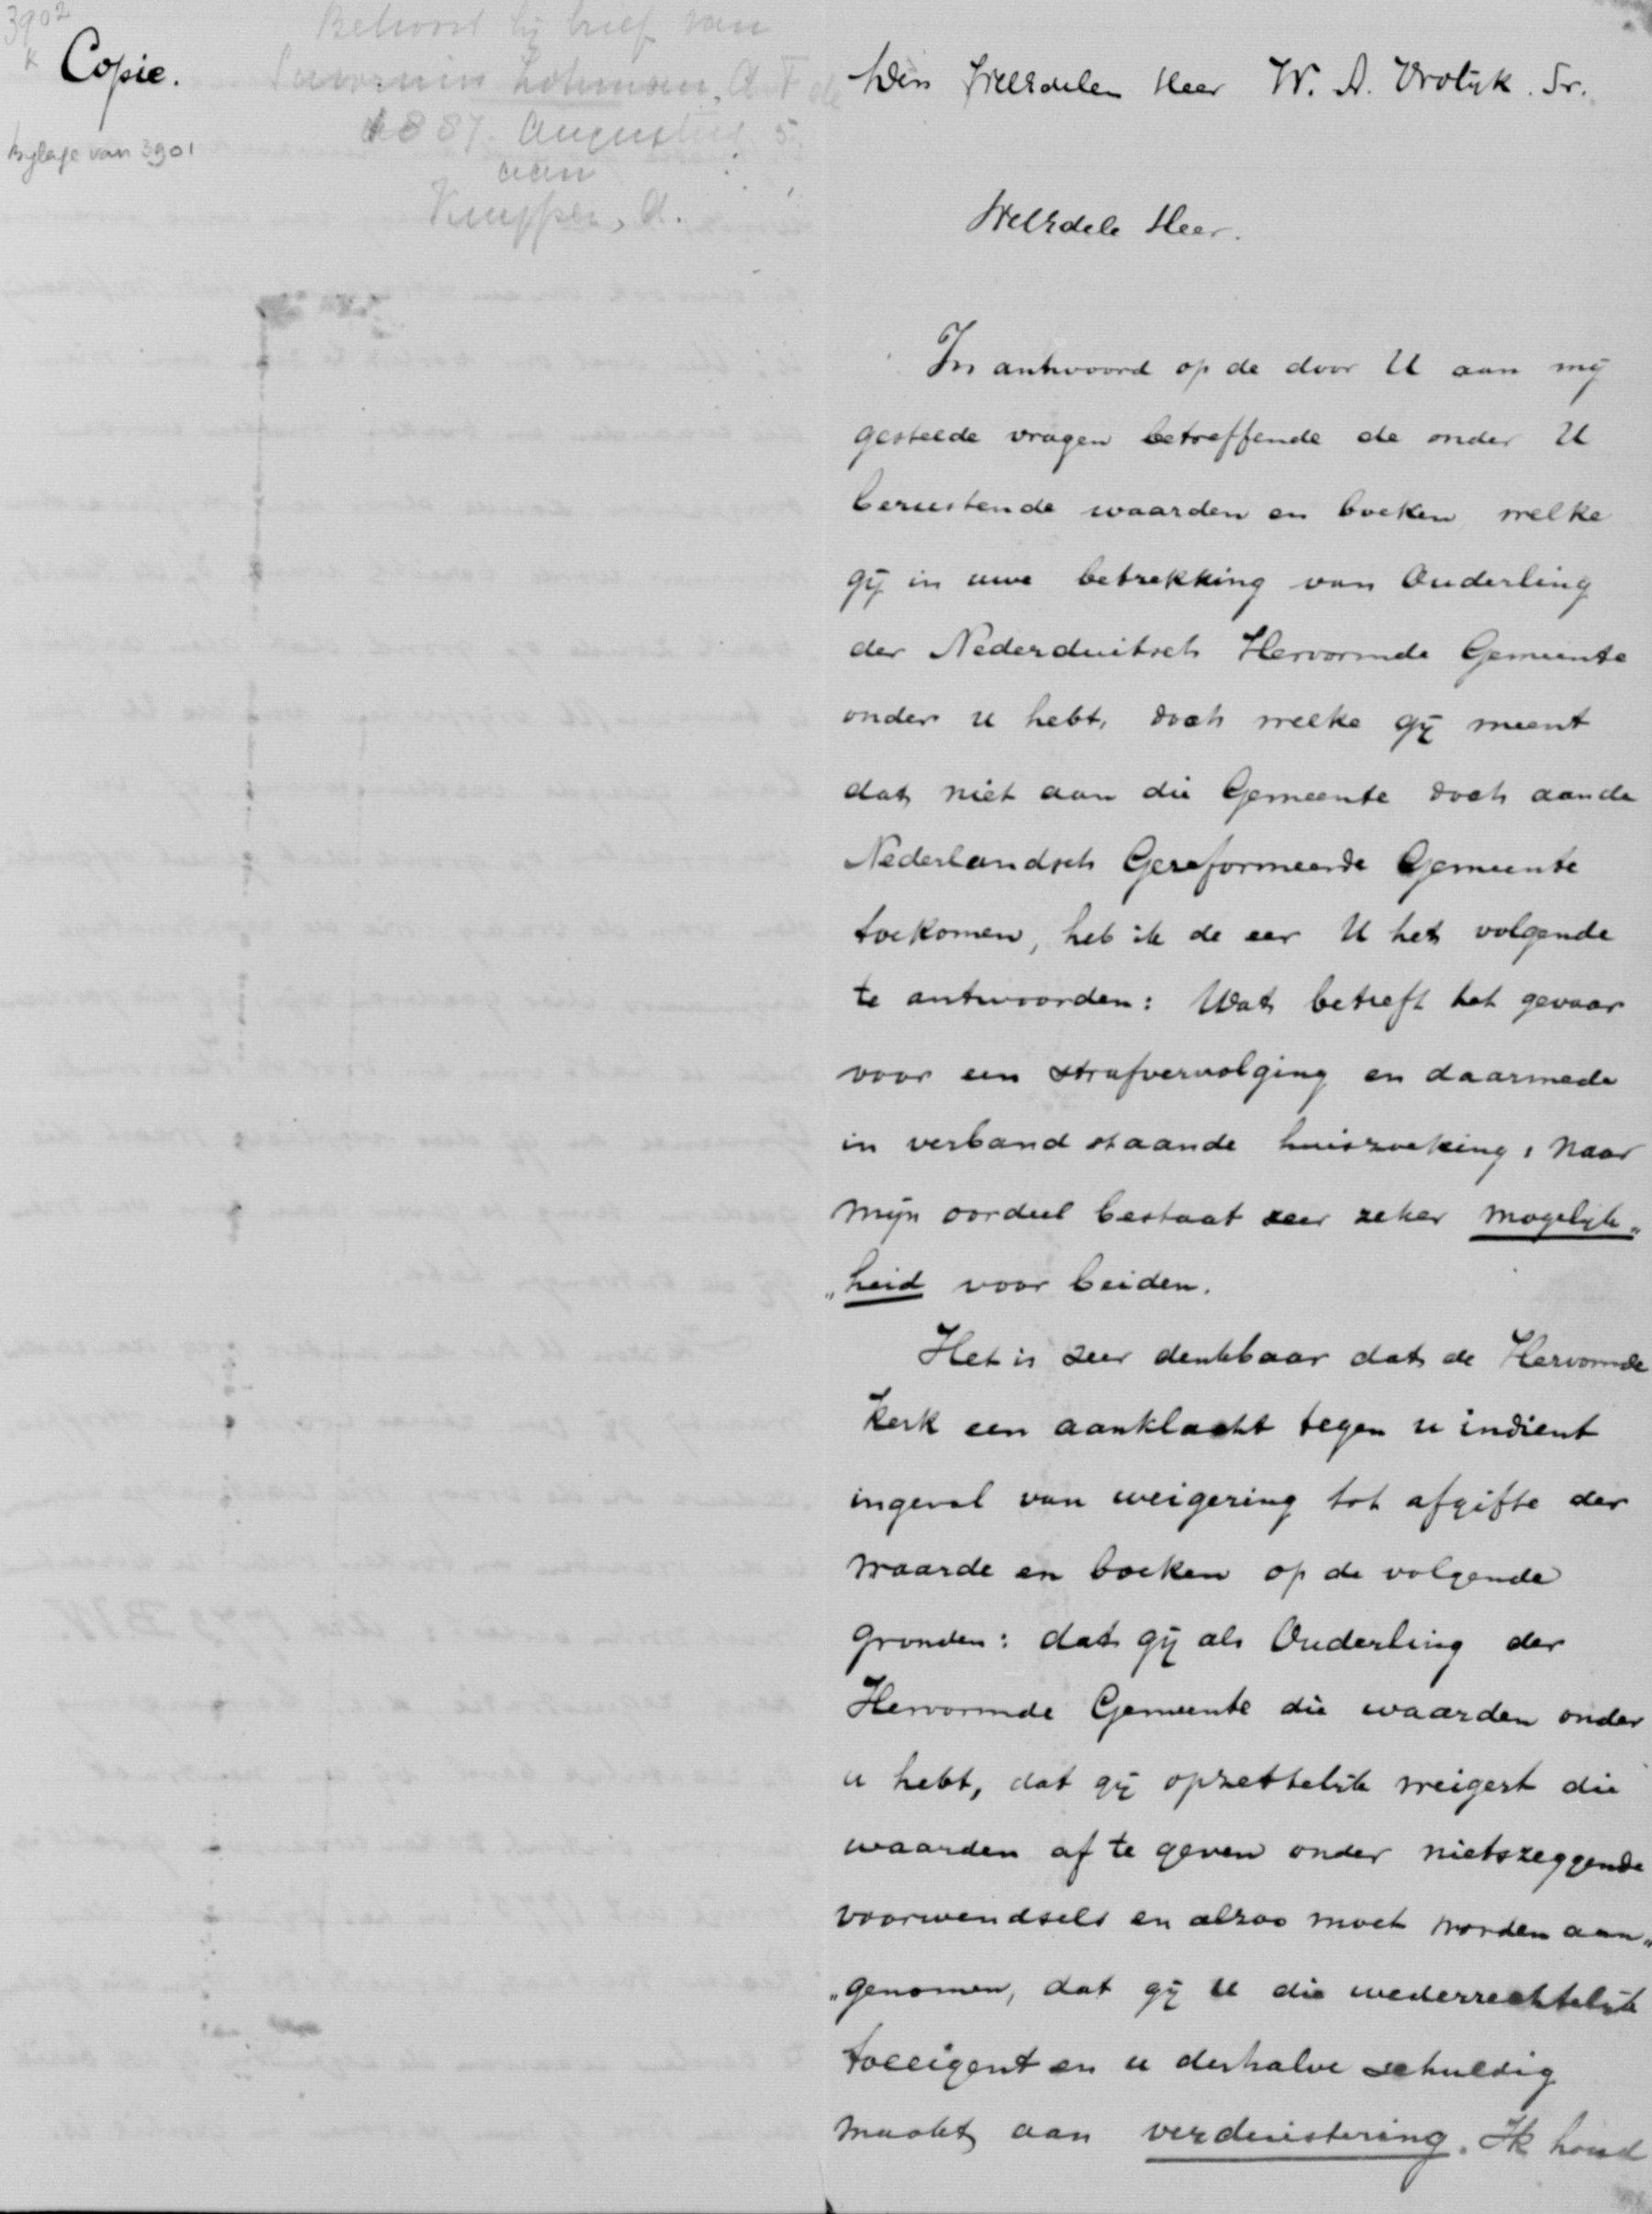 3902
K
Copie.
Bylage van 3901
Behoort bij brief van
Savornin Lohman, A F de
1887 Augustus 5
aan
Kuyper, A.
Den WelEdelen Heer W. A. Vrolyk. Sr.
WelEdele Heer.
In antwoord op de door U aan mij
gestelde vragen betreffende de onder U
berustende waarden en boeken welke
gij in uwe betrekking van Ouderling
der Nederduitsch Hervormde Gemeente
onder u hebt, doch welke gij meent
dat niet aan die Gemeente doch aan de
Nederlandsch Gereformeerde Gemeente
toekomen, heb ik de eer U het volgende
te antwoorden: Wat betreft het gevaar
voor een strafvervolging en daarmede
in verband staande huiszoeking, naar
mijn oordeel bestaat zeer zeker mogelijk„
„heid voor beiden.
Het is zeer denkbaar dat de Hervormde
Kerk een aanklacht tegen u indient
ingeval van weigering tot afgifte der
waarde en boeken op de volgende
gronden: dat gij als Ouderling der
Hervormde Gemeente die waarden onder
u hebt, dat gij opzettelijk weigert die
waarden af te geven onder nietszeggende
voorwendsels en alzoo moet worden aan„
„genomen, dat gij U die wederrechtelijk
toeeigent en u derhalve schuldig
maakt aan verduistering. Ik houd